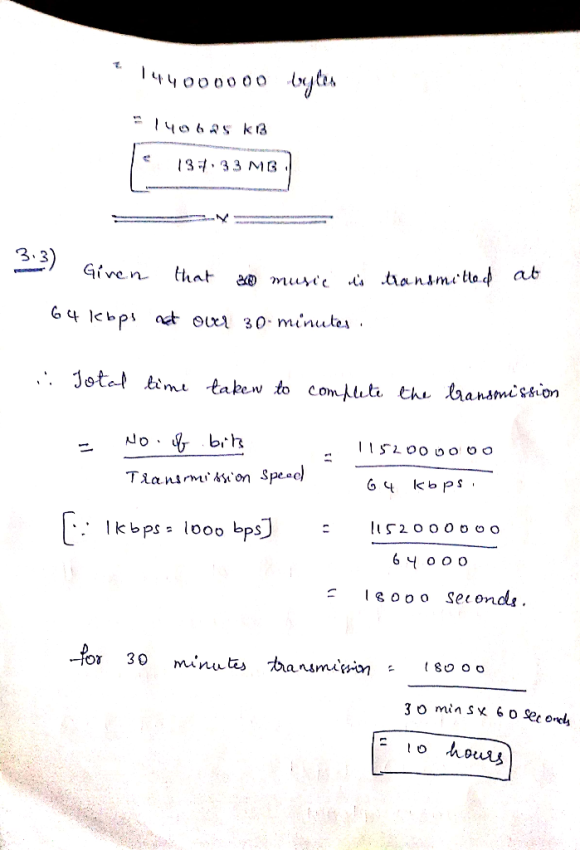 = 144000000 bytes
= 140625 KB
= 137.33 MB.
3.3) Given that music is transmitted at
64 kbps over 30-minutes.
∴ Total time taken to complete the transmission
= No. of bits / Transmission Speed = 1152000000 / 64 kbps.
[∵ 1kbps = 1000 bps] = 1152000000 / 64000
= 18000 seconds.
for 30 minutes transmission = 18000 / 30 mins x 60 seconds
= 10 hours